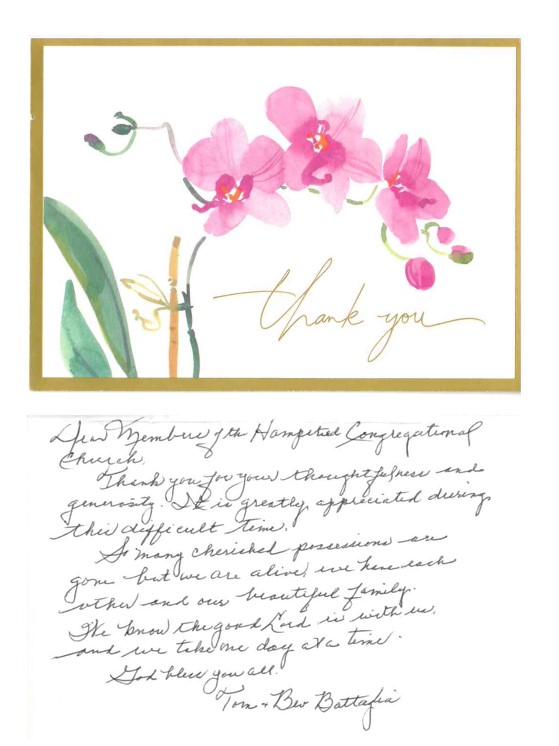 thank you
Dear Members of the Hampstead Congregational
Church,
Thank you for your thoughtfulness and
generosity. It is greatly appreciated during
this difficult time.
So many cherished possessions are
gone but we are alive, we have each
other and our beautiful family.
We know the good Lord is with us,
and we take one day at a time.
God bless you all.
Tom + Bev Battaglia